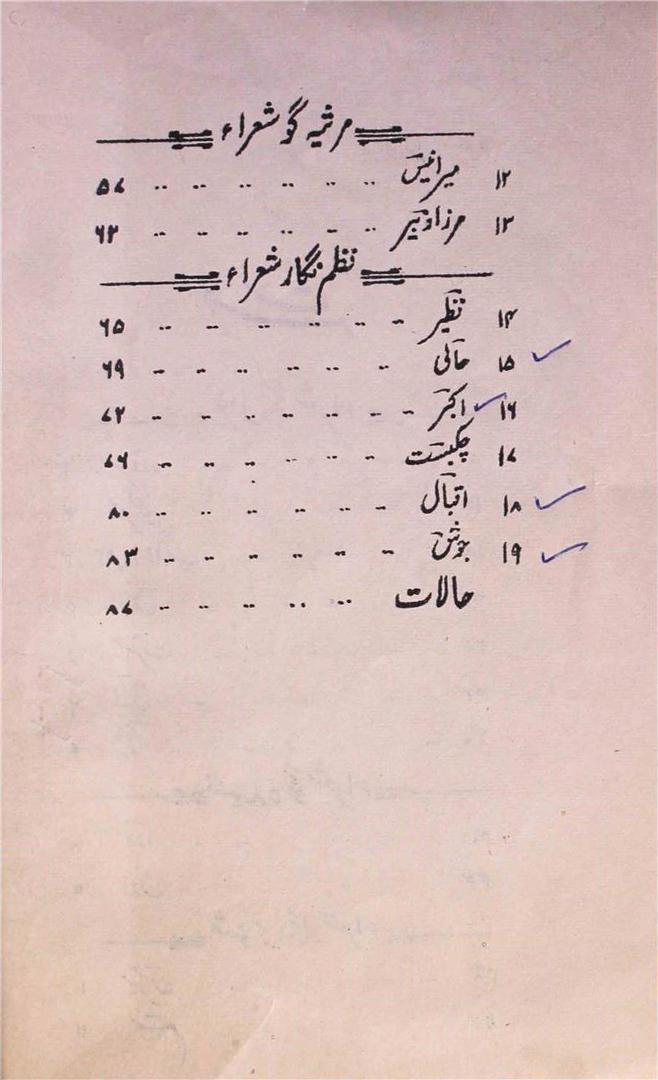 مرثیہ گو شعراء
۱۲ میر انیس ۵۷
۱۳ مرزا دبیر ۶۲
نظم نگار شعراء
۱۴ نظیر ۶۵
۱۵ حالی ۶۹
۱۶ اکبر ۷۲
۱۷ چکبست ۷۶
۱۸ اقبال ۸۰
۱۹ جوش ۸۳
حالات ۸۷